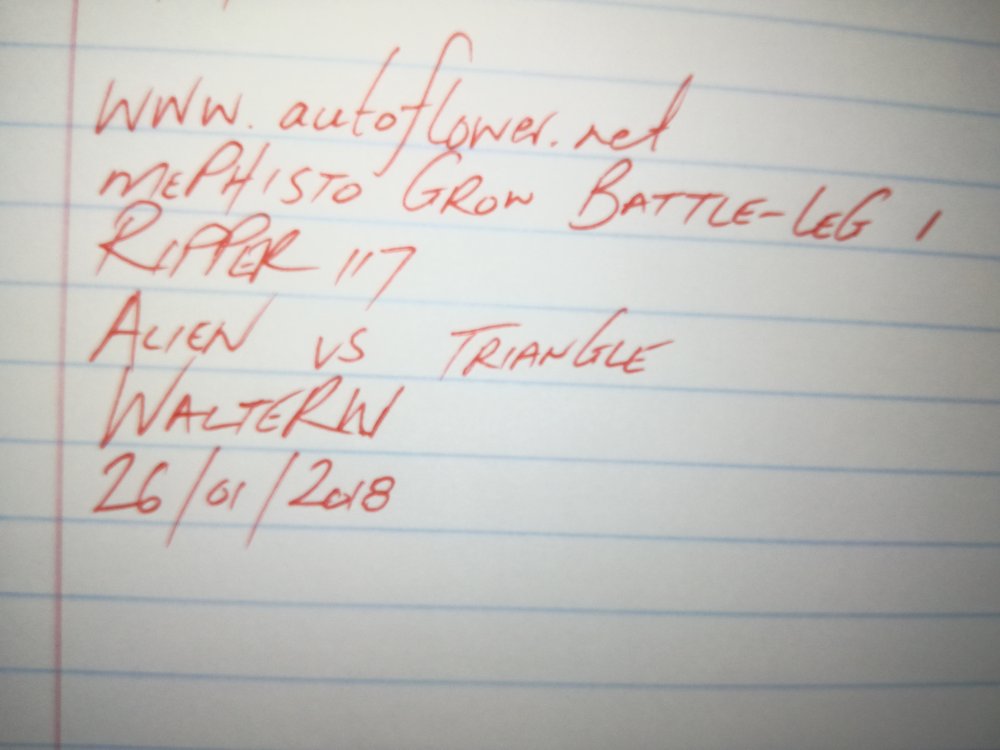 www.autoflower.net
MEPHISTO GROW BATTLE-LEG 1
RIPPER 117
ALIEN VS TRIANGLE
WALTERW
26/01/2018